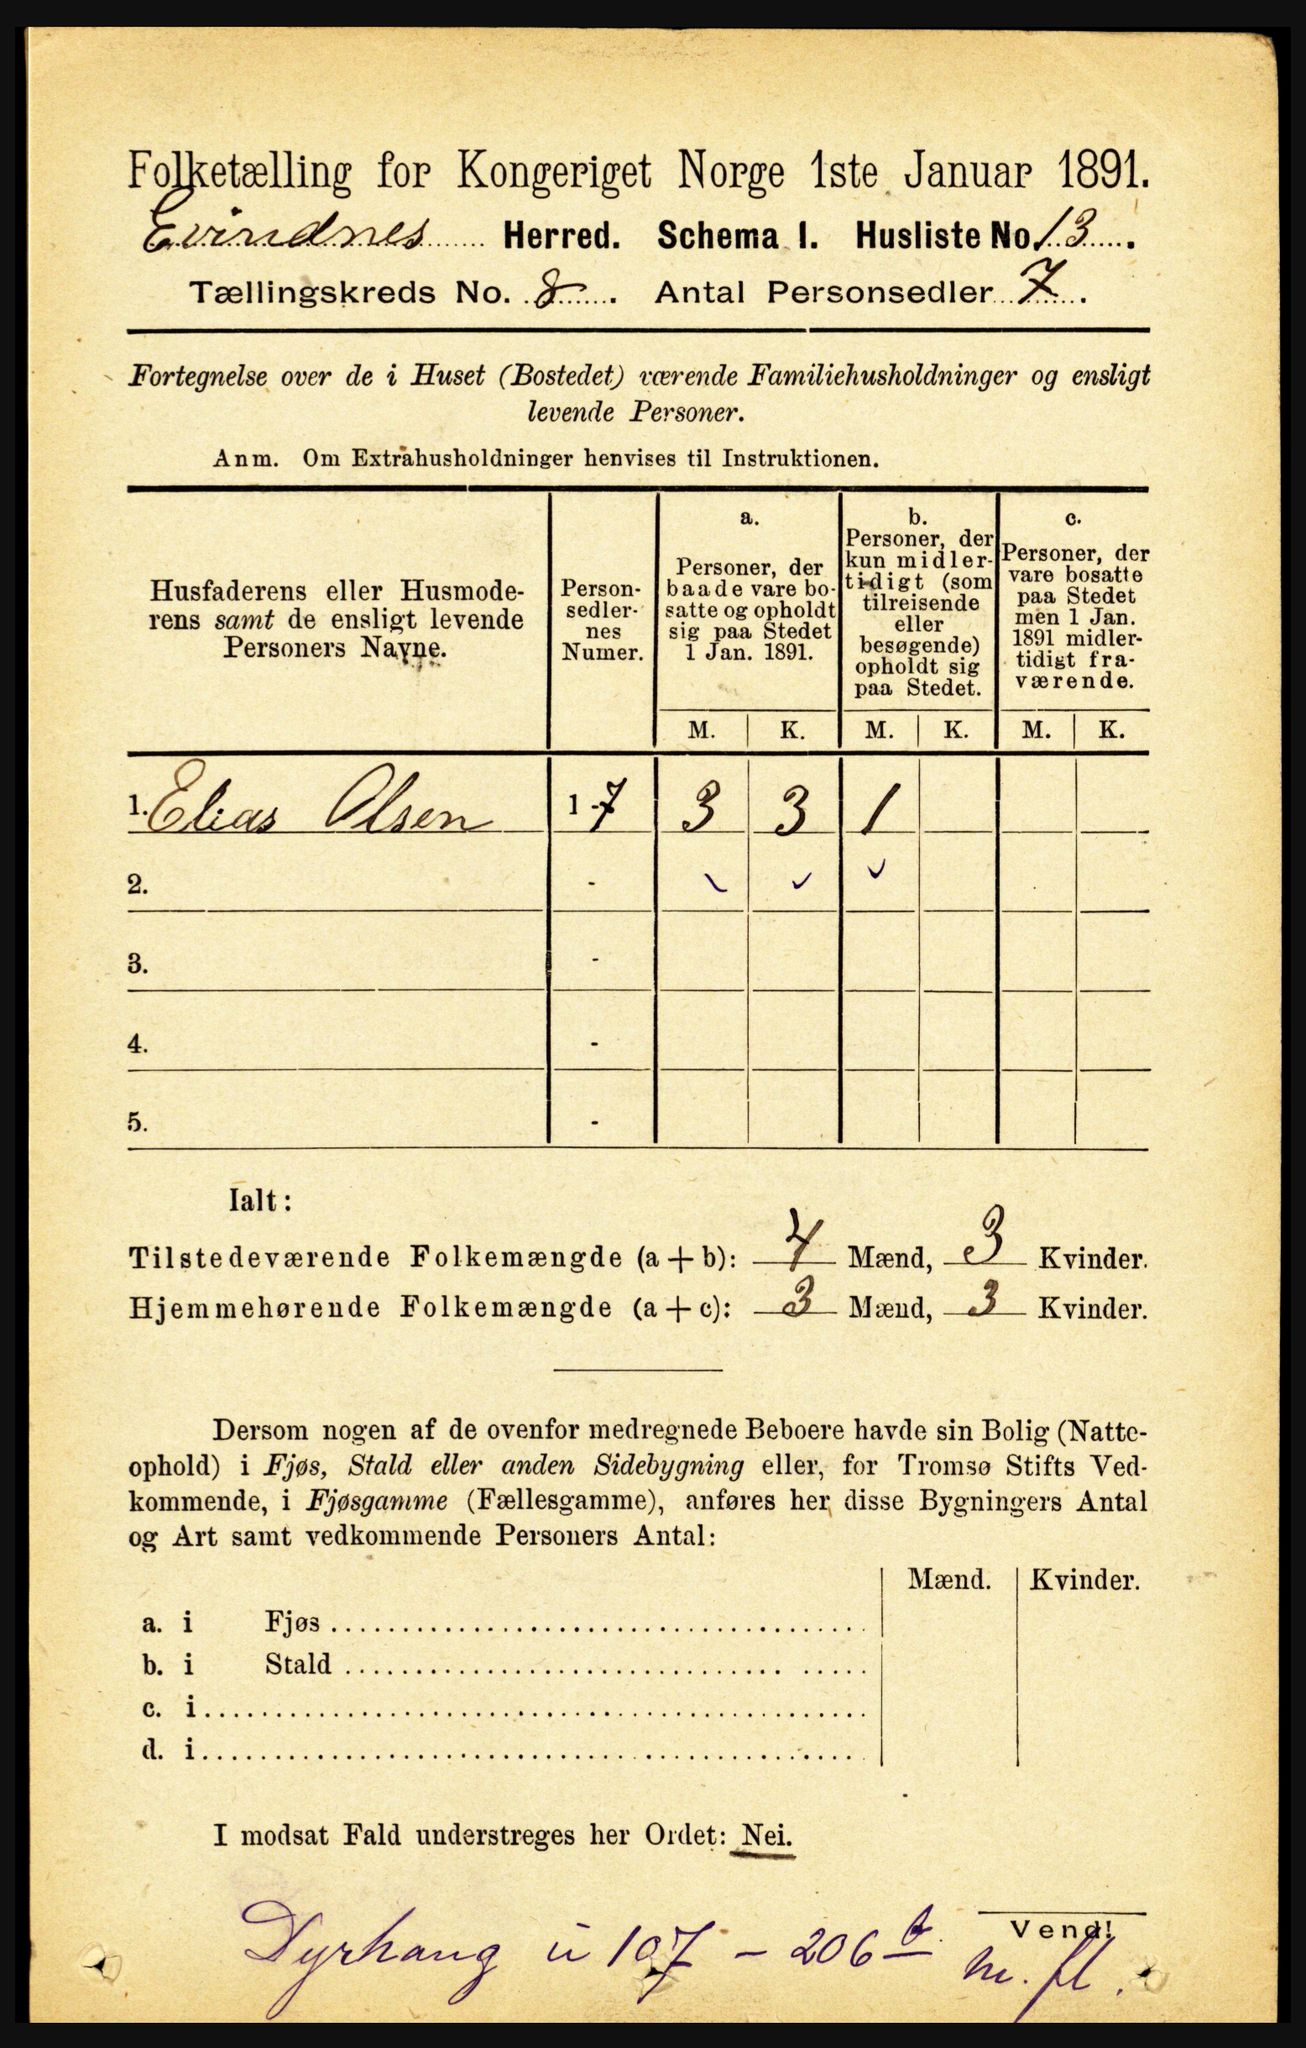 Folketælling for Kongeriget Norge 1ste Januar 1891.
Evindnes Herred. Schema I. Husliste No. 13.
Tællingskreds No. 8. Antal Personsedler 7.
Fortegnelse over de i Huset (Bostedet) værende Familiehusholdninger og ensligt
levende Personer.
Anm. Om Extrahusholdninger henvises til Instruktionen.
Husfaderens eller Husmode-
rens samt de ensligt levende
Personers Navne.
Person-
sedler-
nes
Numer.
a.
Personer, der
baade vare bo-
satte og opholdt
sig paa Stedet
1 Jan. 1891.
b.
Personer, der
kun midler-
tidigt (som
tilreisende
eller
besøgende)
opholdt sig
paa Stedet.
c.
Personer, der
vare bosatte
paa Stedet
men 1 Jan.
1891 midler-
tidigt fra-
værende.
M. K. M. K. M. K.
1. Elias Olsen 1-7 3 3 1
2. -
3. -
4. -
5. -
Ialt:
Tilstedeværende Folkemængde (a + b): 4 Mænd, 3 Kvinder.
Hjemmehørende Folkemængde (a + c): 3 Mænd, 3 Kvinder.
Dersom nogen af de ovenfor medregnede Beboere havde sin Bolig (Natte-
ophold) i Fjøs, Stald eller anden Sidebygning eller, for Tromsø Stifts Ved-
kommende, i Fjøsgamme (Fællesgamme), anføres her disse Bygningers Antal
og Art samt vedkommende Personers Antal:
Mænd. Kvinder.
a. i Fjøs
b. i Stald
c. i
d. i
I modsat Fald understreges her Ordet: Nei.
Vend!
Dyrhaug u 107 - 206 m. fl.